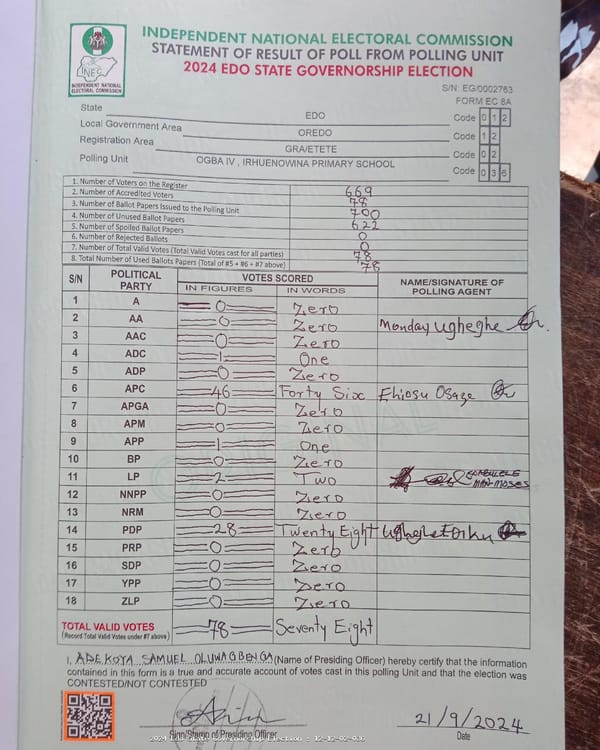 INDEPENDENT NATIONAL ELECTORAL COMMISSION
STATEMENT OF RESULT OF POLL FROM POLLING UNIT
2024 EDO STATE GOVERNORSHIP ELECTION
INEC
INDEPENDENT NATIONAL ELECTORAL COMMISSION
S/N: EG/0002763
FORM EC 8A
State EDO Code 0 1 2
Local Government Area OREDO Code 1 2
Registration Area GRA/ETETE Code 0 2
Polling Unit OGBA IV , IRHUENOWINA PRIMARY SCHOOL Code 0 3 6
1. Number of Voters on the Register 669
2. Number of Accredited Voters 78
3. Number of Ballot Papers Issued to the Polling Unit 700
4. Number of Unused Ballot Papers 622
5. Number of Spoiled Ballot Papers 0
6. Number of Rejected Ballots 0
7. Number of Total Valid Votes (Total Valid Votes cast for all parties) 78
8. Total Number of Used Ballots Papers (Total of #5 + #6 + #7 above) 78
S/N POLITICAL PARTY VOTES SCORED NAME/SIGNATURE OF POLLING AGENT
IN FIGURES IN WORDS
1 A 0 Zero
2 AA 0 Zero Monday Ugheghe
3 AAC 0 Zero
4 ADC 1 One
5 ADP 0 Zero
6 APC 46 Forty Six Ehiosu Osaze
7 APGA 0 Zero
8 APM 0 Zero
9 APP 1 One
10 BP 0 Zero
11 LP 2 Two MAN-MOSES
12 NNPP 0 Zero
13 NRM 0 Zero
14 PDP 28 Twenty Eight
15 PRP 0 Zero
16 SDP 0 Zero
17 YPP 0 Zero
18 ZLP 0 Zero
TOTAL VALID VOTES 78 Seventy Eight
(Record Total Valid Votes under #7 above)
I, ADEKOYA SAMUEL OLUWAGBENGA (Name of Presiding Officer) hereby certify that the information
contained in this form is a true and accurate account of votes cast in this polling Unit and that the election was
CONTESTED/NOT CONTESTED
21/9/2024
Sign/Stamp of Presiding Officer Date
2024 Edo State Governorship Election - 12-12-02-036